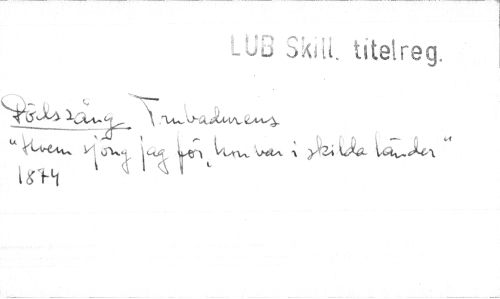 LUB Skill. titelreg.
Dödssång Trubadurens
"Hvem sjöng jag för, hon var i skilda länder"
1874